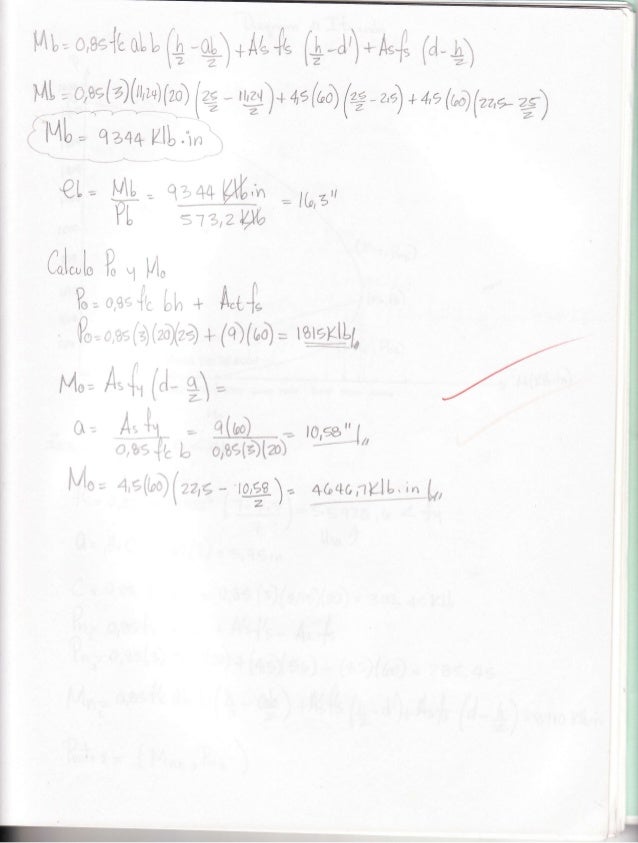 Mb = 0,85 f'c ab b (h/2 - ab/2) + A's f's (h/2 - d') + As fs (d - h/2)
Mb = 0,85(3)(11,24)(20) (25/2 - 11,24/2) + 4,5(60) (25/2 - 2,5) + 4,5(60)(22,5 - 25/2)
Mb = 9344 Klb.in
eb = Mb/Pb = 9344 Klb in/573,2 Klb = 16,3"
Calculo Po y Mo
Po = 0,85 f'c bh + Act fs
Po = 0,85(3)(20)(25) + (9)(60) = 1815 Klb
Mo = As fy (d - a/2) =
a = As fy/0,85 f'c b = 9(60)/0,85(3)(20) = 10,58"
Mo = 4,5(60)(22,5 - 10,58/2) = 4646,7 Klb.in